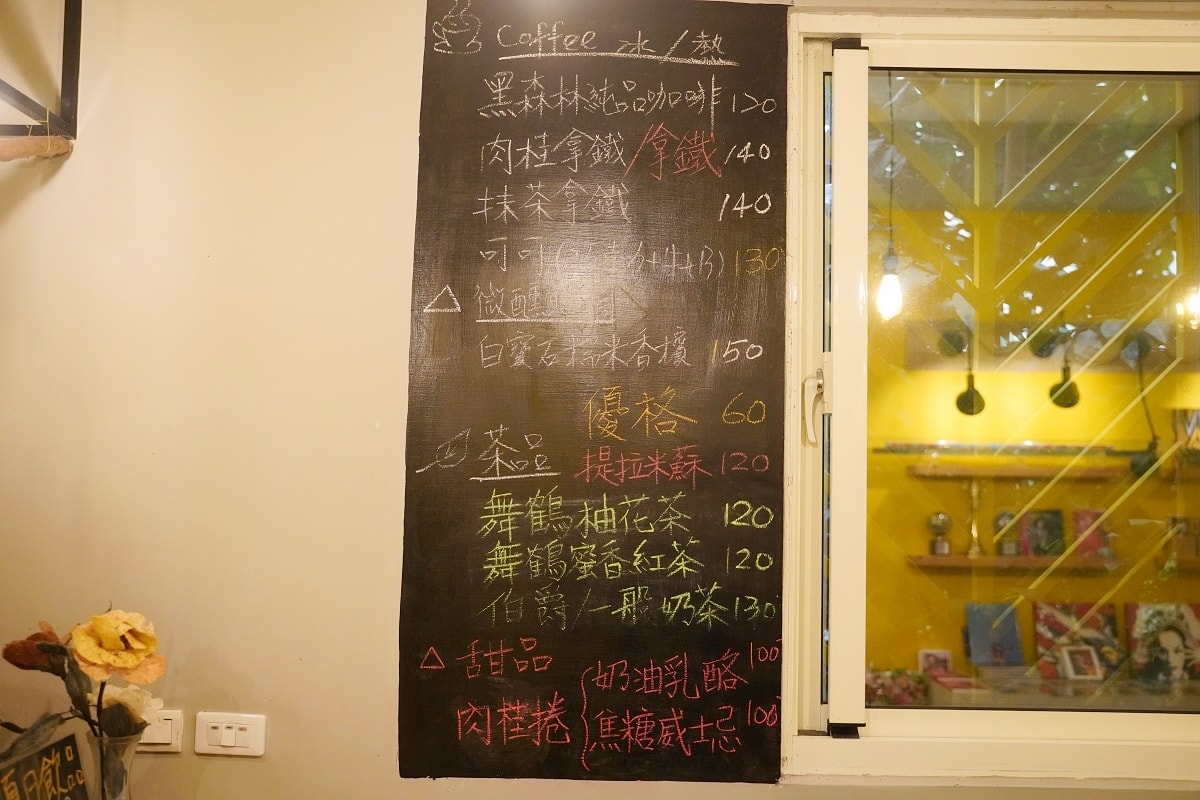 Coffee 冰/熱
黑森林純品咖啡 120
肉桂拿鐵/拿鐵 140
抹茶拿鐵 140
可可 130
微醺
白寶石糯米香檳 150
優格 60
茶品 提拉米蘇 120
舞鶴柚花茶 120
舞鶴蜜香紅茶 120
伯爵/一般奶茶 130
甜品
肉桂捲 奶油乳酪 100
焦糖威士忌 100
夏日飲品